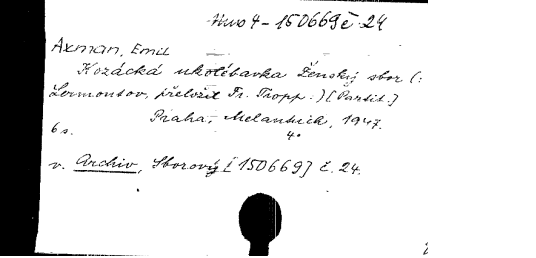 Mus 4 - 150669 č. 24
Axman, Emil
Kozácká ukolébavka Ženský sbor (:
Lermontov, přeložil Fr. Tropp:) [Partit.]
Praha, Melantrich, 1947.
6 s. 4°
v. Archiv, Sborový [150669] č. 24.